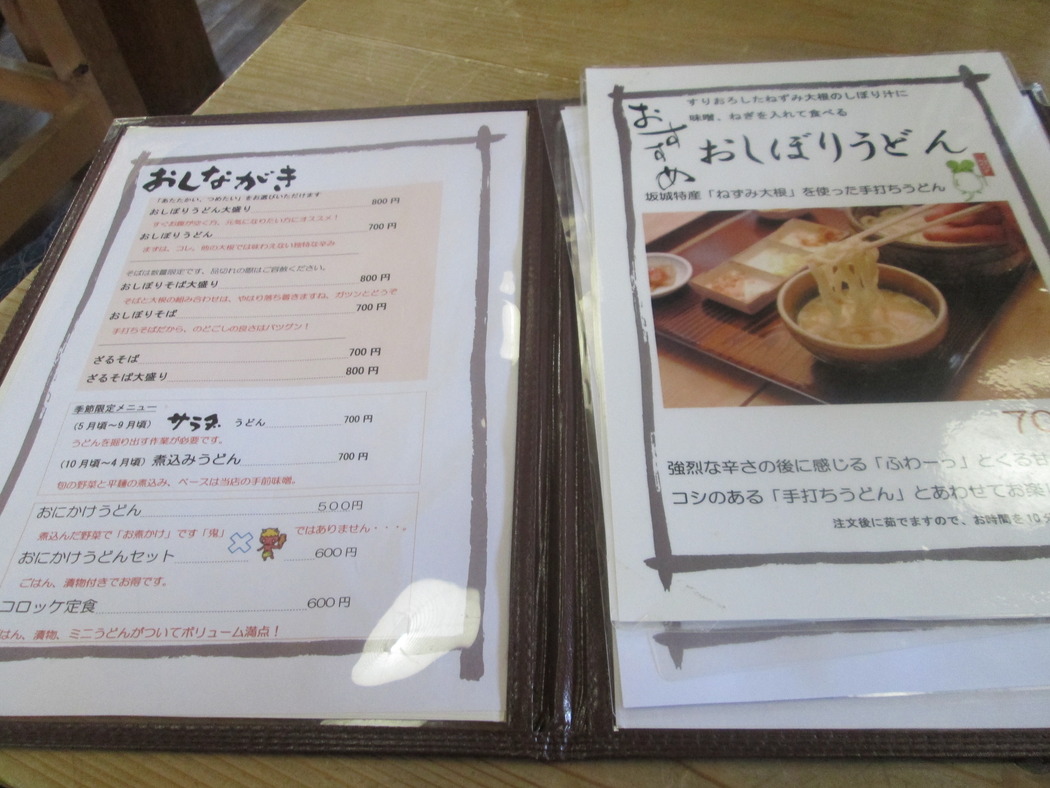 おしながき
「あたたかい、つめたい」をお選びいただけます
おしぼりうどん大盛り 800円
すぐお腹がすく方、元気になりたい方にオススメ！
おしぼりうどん 700円
まずは、コレ、他の大根では味わえない独特な辛み
そばは数量限定です、品切れの際はご容赦ください。
おしぼりそば大盛り 800円
そばと大根の組み合わせは、やはり落ち着きますね、ガツンとどうぞ
おしぼりそば 700円
手打ちそばだから、のどごしの良さはバツグン！
ざるそば 700円
ざるそば大盛り 800円
季節限定メニュー
（5月頃～9月頃） サラダ うどん 700円
うどんを掘り出す作業が必要です。
（10月頃～4月頃） 煮込みうどん 700円
旬の野菜と平麺の煮込み、ベースは当店の手前味噌。
おにかけうどん 500円
煮込んだ野菜で「お煮かけ」です「鬼」 ではありません・・・。
おにかけうどんセット 600円
ごはん、漬物付きでお得です。
コロッケ定食 600円
はん、漬物、ミニうどんがついてボリューム満点！
おすすめ
すりおろしたねずみ大根のしぼり汁に
味噌、ねぎを入れて食べる
おしぼりうどん
坂城特産「ねずみ大根」を使った手打ちうどん
70
強烈な辛さの後に感じる「ふわーっ」とくる甘
コシのある「手打ちうどん」とあわせてお楽し
注文後に茹でますので、お時間を10分